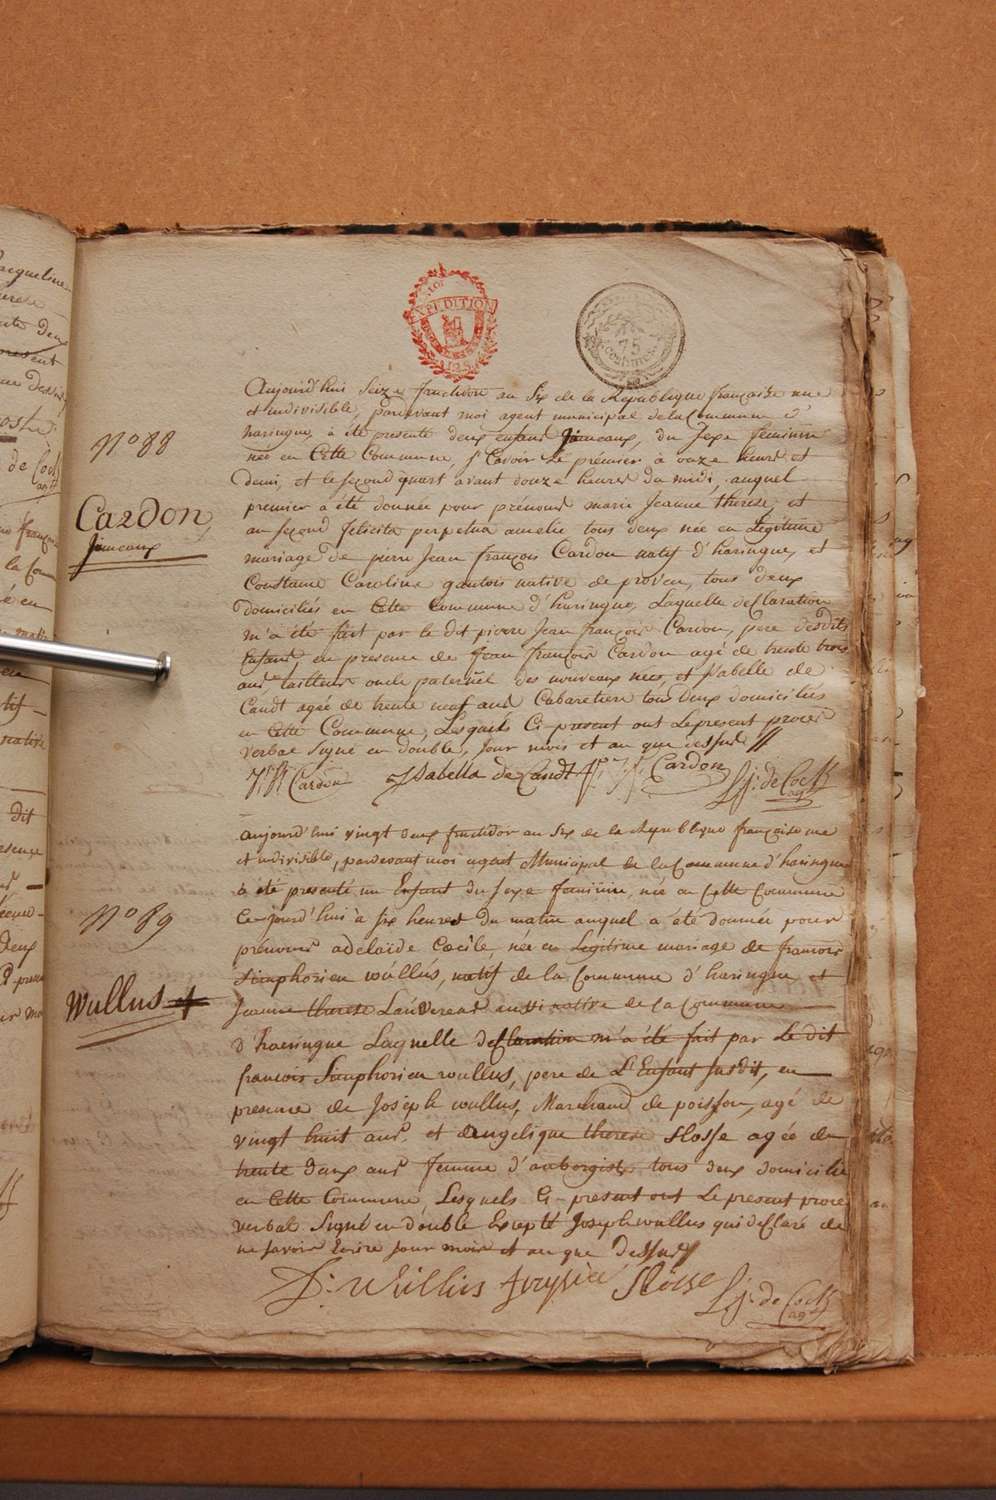 EXPEDITION
75
CENTIMES
Nº 88
Cardon
Jimeaux
aujourd'hui Seize fructidor an Six de la Republique française une
et indivisible, pardevant moi agent municipal de la Commune d'
haringue, à été presenté deux enfans Jimeaux, du Sexe feminin
née en Cette Commune Savoir Le premier à onze heures et
demi, et le second quart avant douze heures du midi, auquel
premier a été donnée pour prénoms marie Jeanne therese, et
au second felicita perpetua amelie tous deux née en Legitime
mariage de pierre Jean françois Cardon natif d'haringue, et
Constance Caroline gantois native de proven, tous deux
domiciliés en Cette Commune d'haringue, Laquelle declaration
m'a été fait par le dit pierre Jean françois Cardon, pere desdits
Enfans, en presence de Jean françois Cardon agé de trente trois
ans tailleur oncle paternel des nouveaux nées, et Isabelle de
Candt agée de trente neuf ans Cabaretiere tous deux domiciliés
en Cette Commune, Lesquels Ci present ont Le present proces
verbal Signé en double, Jour mois et an que dessus
J. f. Cardon Isabella de Candt P. J. f. Cardon
L. J. de Cock
ag
Nº 89
Wullus
aujourd'hui vingt deux fructidor an Six de la Republique française une
et indivisible, pardevant moi agent Municipal de la Commune d'haringue
à été presenté un Enfant du Sexe feminin, née en Cette Commune
Ce-jourd'hui à Six heures du matin auquel a été donnée pour
prénoms adelaide Cœcile, née en Legitime mariage de francois
Simphorien wullus, natif de la Commune d'haringue et
Jeanne therese native de la Commune
d'haeringue Laquelle declaration m'a été fait par Le dit
francois Simphorien wullus, pere de L'Enfant Susdit, en
presence de Joseph wullus, Marchand de poisson, agé de
vingt huit ans, et dangelique therese Slosse agée de
trente deux ans femme d'aubergiste tous deux domicilié
en Cette Commune Lesquels Ci-present ont Le present proces
verbal Signé en double Excepté Joseph wullus qui declaré de
ne Savoir Ecrire Jour mois et an que dessus
Wullus Slosse L. J. de Cock
ag